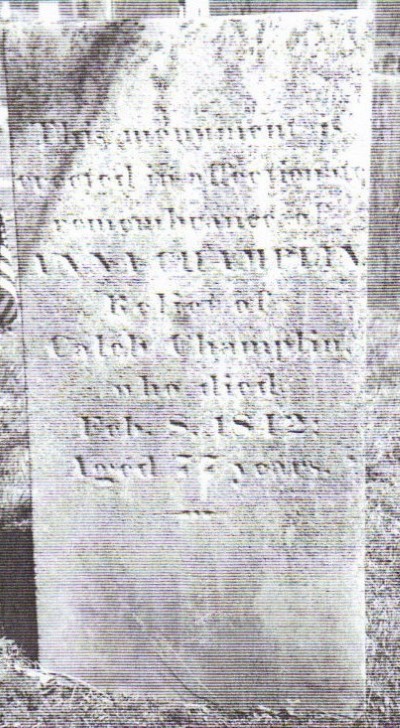 This monument is
erected in affectionate
remembrance of
ANNA CHAMPLIN
Relict of
Caleb Champlin,
who died
Feb. 8, 1842;
Aged 77 years.